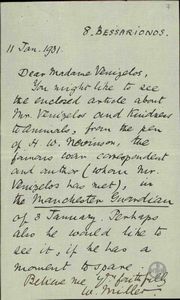 8. BESSARIONOS.
11 Jan. 1931.
Dear Madame Venizelos,
You might like to see
the enclosed article about
Mr. Venizelos and kindness
to animals, from the pen
of H. W. Nevinson, the
famous war correspondent
and author (whom Mr.
Venizelos has met), in
the Manchester Guardian
of 3 January. Perhaps
also he would like to
see it, if he has a
moment to spare.
Believe me yrs faithfully
W. Miller